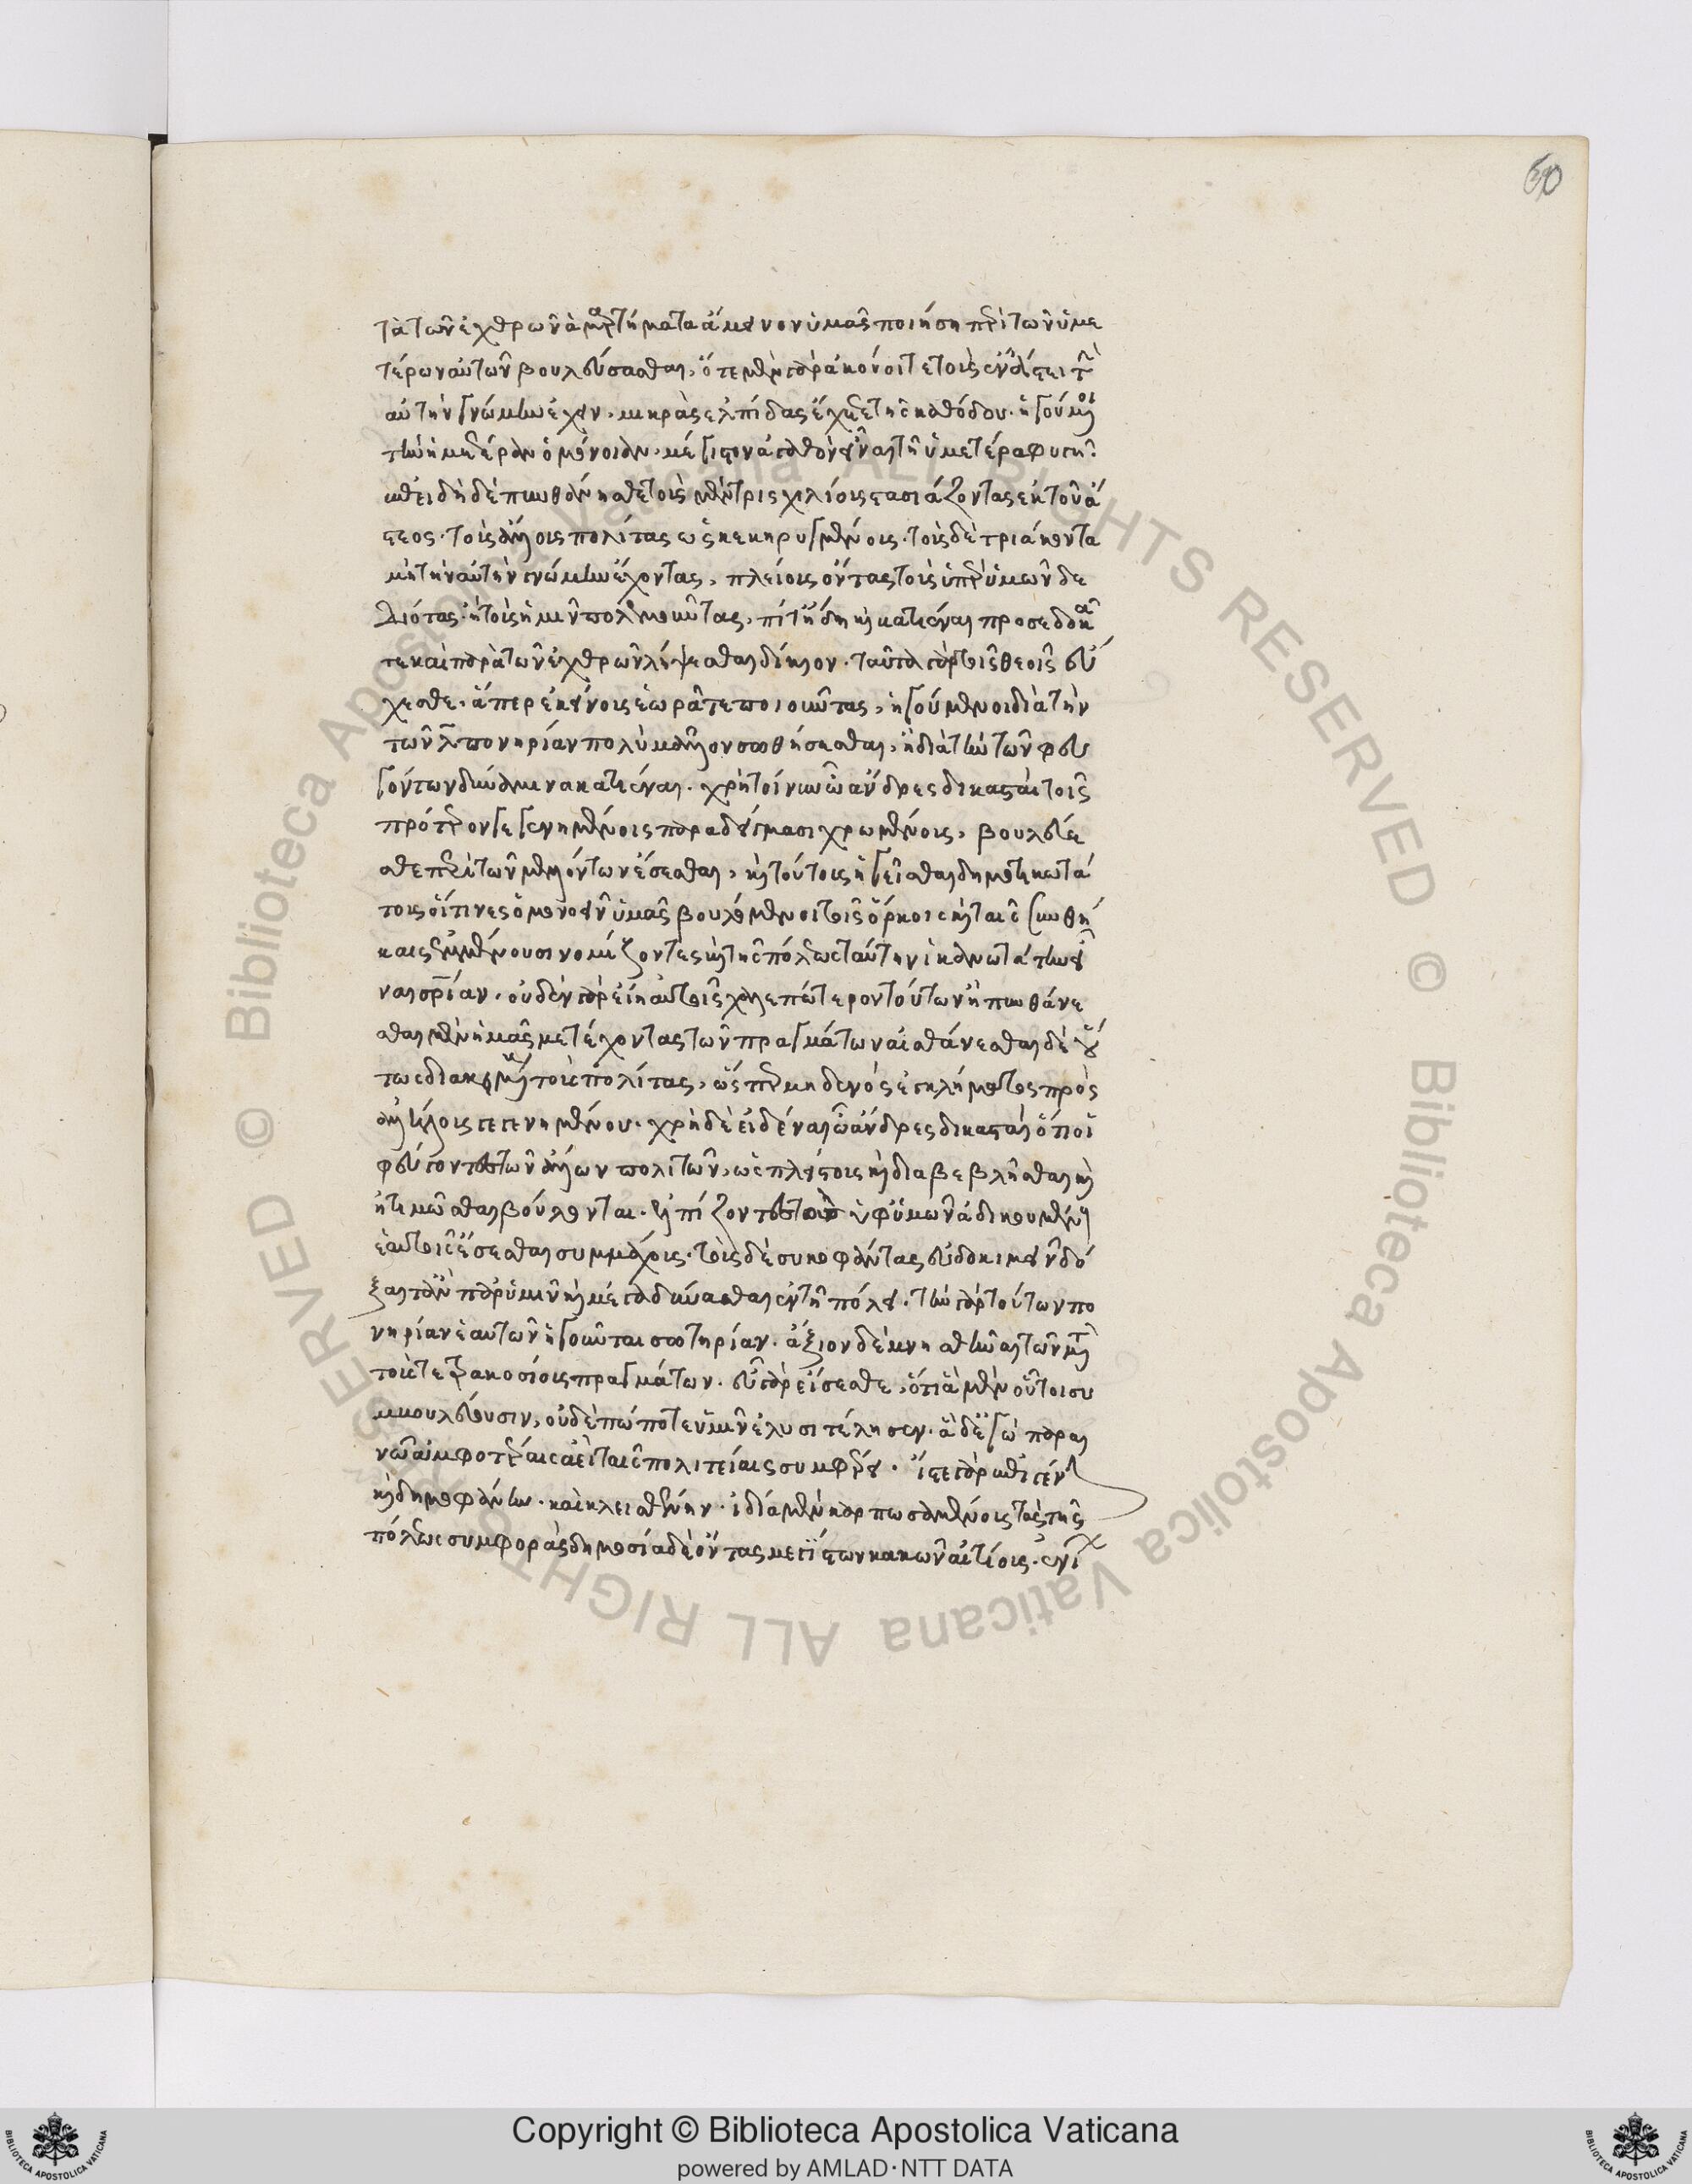 τὰ τῶν ἐχθρῶν ἁμαρτήματα ἄμεινον ὑμᾶς ποιήση περὶ τῶν ὑμε
τέρων αὐτῶν βουλεύσασθαι, ὅτε μὲν γὰρ ἀκούοιτε τοὺς ἐν ἄστει τὴν
αὐτὴν γνώμην ἔχειν, μικρὰς ἐλπίδας ἔχετε τῆς καθόδου. ἡγούμενοι
τὴν ἡμετέραν ὁμόνοιαν, μέγιστον κακὸν εἶναι τῆ ὑμετέρα φυγῆ.
ἐπειδὴ δὲ πυνθάνησθε τοὺς μὲν τρισχιλίους στασιάζοντας ἐκ τοῦ ἄ
στεος. τοὺς ἄλλους πολίτας ἐκκεκηρυγμένους. τοὺς δὲ τριάκοντα
μὴ τὴν αὐτὴν γνώμην ἔχοντας, πλείους ὄντας τοὺς ὑπὲρ ὑμῶν δε
διότας. ἢ τοὺς ἡμῖν πολεμοῦντας, ἤδη καὶ κατιέναι προσεδοκᾶ
τε καὶ παρὰ τῶν ἐχθρῶν λήψεσθαι δίκην. ταῦτα γὰρ τοῖς θεοῖς εὔ
χεσθε. ἅπερ ἐκείνους ἑωρᾶτε ποιοῦντας, ἡγούμενοι διὰ τὴν
τῶν λ πονηρίαν πολὺ μᾶλλον σωθήσεσθαι, ἢ διὰ τὴν τῶν φευ
γόντων δύναμιν κατιέναι. χρὴ τοίνυν ὦ ἄνδρες δικασταὶ τοῖς
πρότερον γεγενημένοις παραδείγμασι χρωμένους, βουλεύε
σθε περὶ τῶν μελλόντων ἔσεσθαι, καὶ τούτους ἡγεῖσθαι δημοτικωτά
τους οἵτινες ὁμονοεῖν ὑμᾶς βουλόμενοι τοῖς ὅρκοις καὶ ταῖς συνθή
καις ἐμμένουσι νομίζοντες καὶ τῆς πόλεως ταύτην ἱκανωτάτην εἶ
ναι σωτηρίαν. οὐδὲν γὰρ εἴη αὐτοῖς χαλεπώτερον τούτων ἢ πυνθάνε
σθαι μὲν ἡμᾶς μετέχοντας τῶν πραγμάτων αἰσθάνεσθαι δὲ οὕ
τως διακειμένους τοὺς πολίτας, ὥσπερ μηδενὸς ἐγκλήματος πρὸς
ἀλλήλους γεγενημένου. χρὴ δὲ εἰδέναι ὦ ἄνδρες δικασταὶ ὅτι οἱ
φεύγοντες τῶν ἄλλων πολιτῶν, ὡς πλείστους καὶ διαβεβλῆσθαι καὶ
ἠτιμῶσθαι βούλονται. ἐλπίζοντες τοὺς ὑφ' ὑμῶν ἀδικουμένους
ἑαυτοῖς ἔσεσθαι συμμάχους. τοὺς δὲ συκοφάντας εὐδοκιμεῖν δέ
ξαιντ' ἂν παρ' ὑμῖν καὶ μέγα δύνασθαι ἐν τῆ πόλει. τὴν γὰρ τούτων πο
νηρίαν ἑαυτῶν ἡγοῦνται σωτηρίαν. ἄξιον δὲ μνησθῆναι τῶν μετὰ
τοὺς τετρακοσίους πραγμάτων. εὖ γὰρ εἴσεσθε, ὅτι ἃ μὲν οὗτοι συ
μβουλεύουσιν, οὐδὲ πώποτε ὑμῖν ἐλυσιτέλησεν. ἃ δὲ ἐγὼ παραι
νῶ ἀμφοτέραις ἀεὶ ταῖς πολιτείαις συμφέρει. ἴστε γὰρ ἐπιγένην
καὶ δημοφάνην. καὶ κλεισθένην. ἰδία μὲν καρπωσαμένους τὰς τῆς
πόλεως συμφορὰς δημοσία δὲ ὄντας μεγίστων κακῶν αἰτίους.